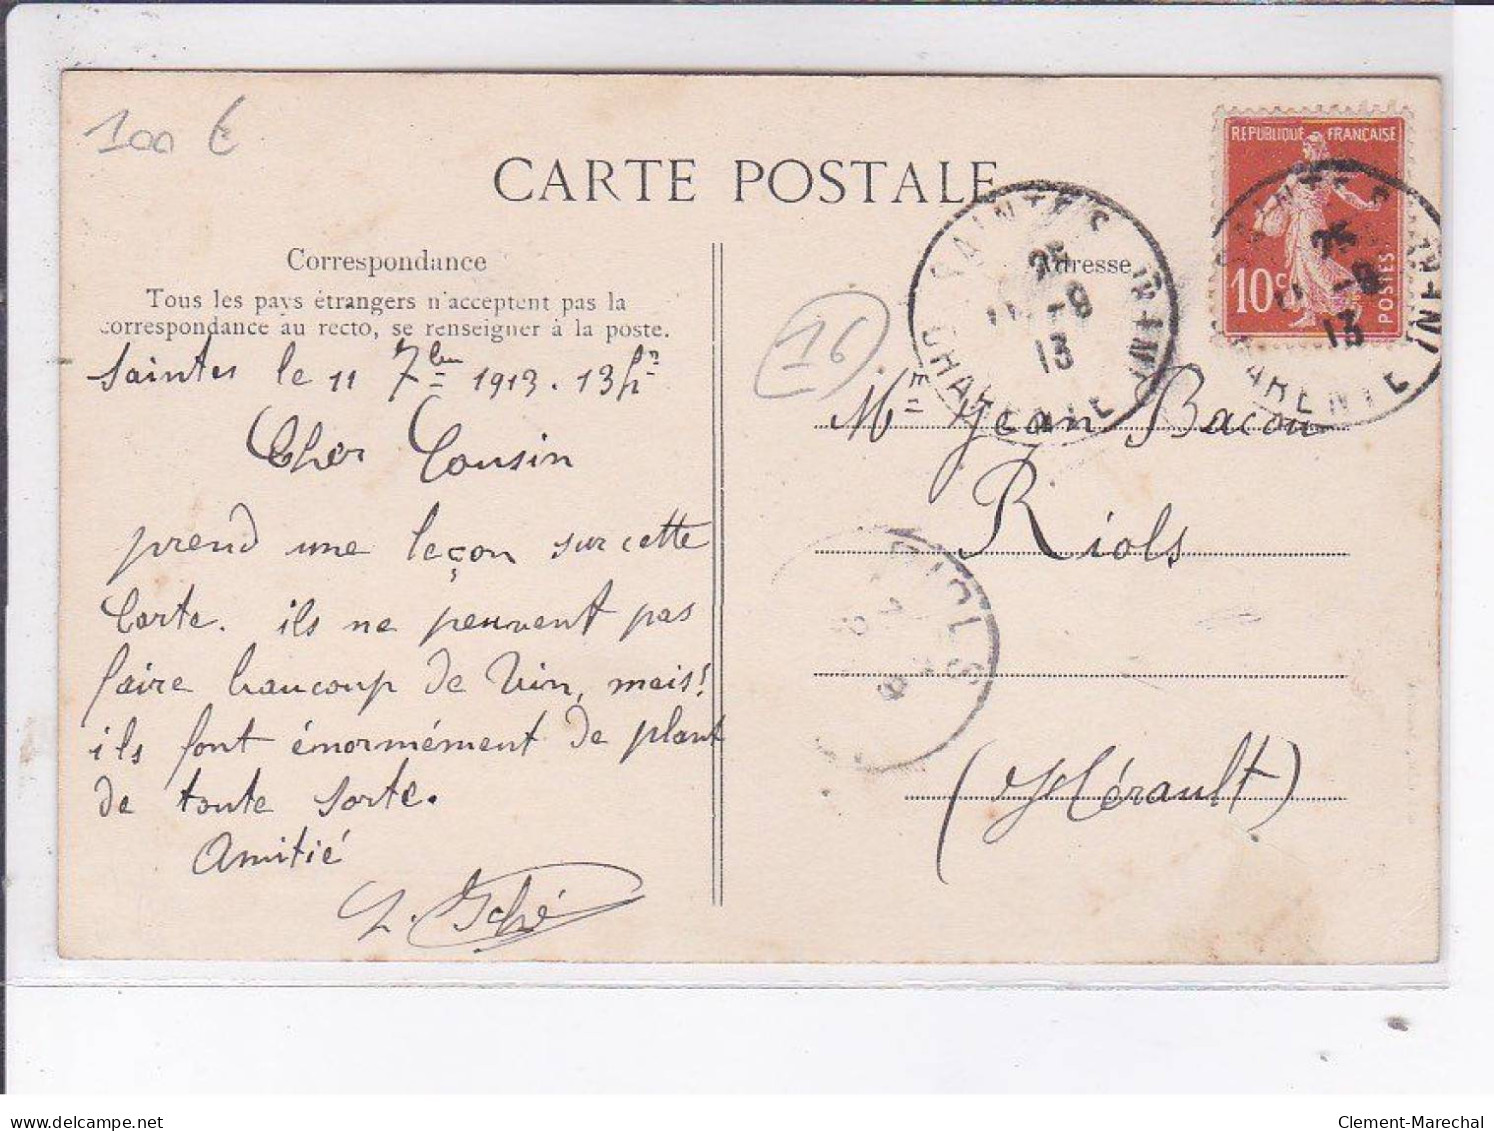 100 €
CARTE POSTALE
REPUBLIQUE FRANÇAISE
10c
POSTES
SAINTES
25
11 -9
13
CHARENTE
SAINTES
25
11 -9
13
CHARENTE INFRE
Correspondance
Tous les pays étrangers n'acceptent pas la
correspondance au recto, se renseigner à la poste.
Adresse
16
Saintes le 11 7bre 1913. 13h
Cher Cousin
prend une leçon sur cette
Carte. ils ne peuvent pas
faire baucoup de Vin, mais!
ils font énormément de plant
de toute sorte.
Amitié
Mr Jean Bacou
Riols
(Hérault)
RIOLS
delcampe.net
Clement-Marechal